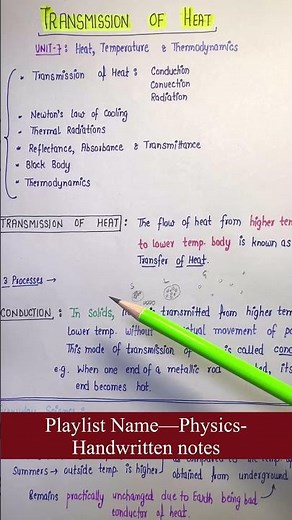 TRANSMISSION OF HEAT
UNIT-7: Heat, Temperature & Thermodynamics
• Transmission of Heat: Conduction
Convection
Radiation
• Newton's Law of Cooling
• Thermal Radiations
• Reflectance, Absorbance & Transmittance
• Black Body
• Thermodynamics
TRANSMISSION OF HEAT: The flow of heat from higher tem
to lower temp. body is known as
Transfer of Heat.
3 Processes →
S L G
CONDUCTION: In Solids, transmitted from higher tem
Lower temp. without movement of pa
This mode of transmission of is called cond
e.g. When one end of a metallic rod its
end becomes hot.
Playlist Name—Physics-
Handwritten notes
Summers → outside temp. is higher obtained from underground
Remains practically unchanged due to Earth being bad
conductor of heat.